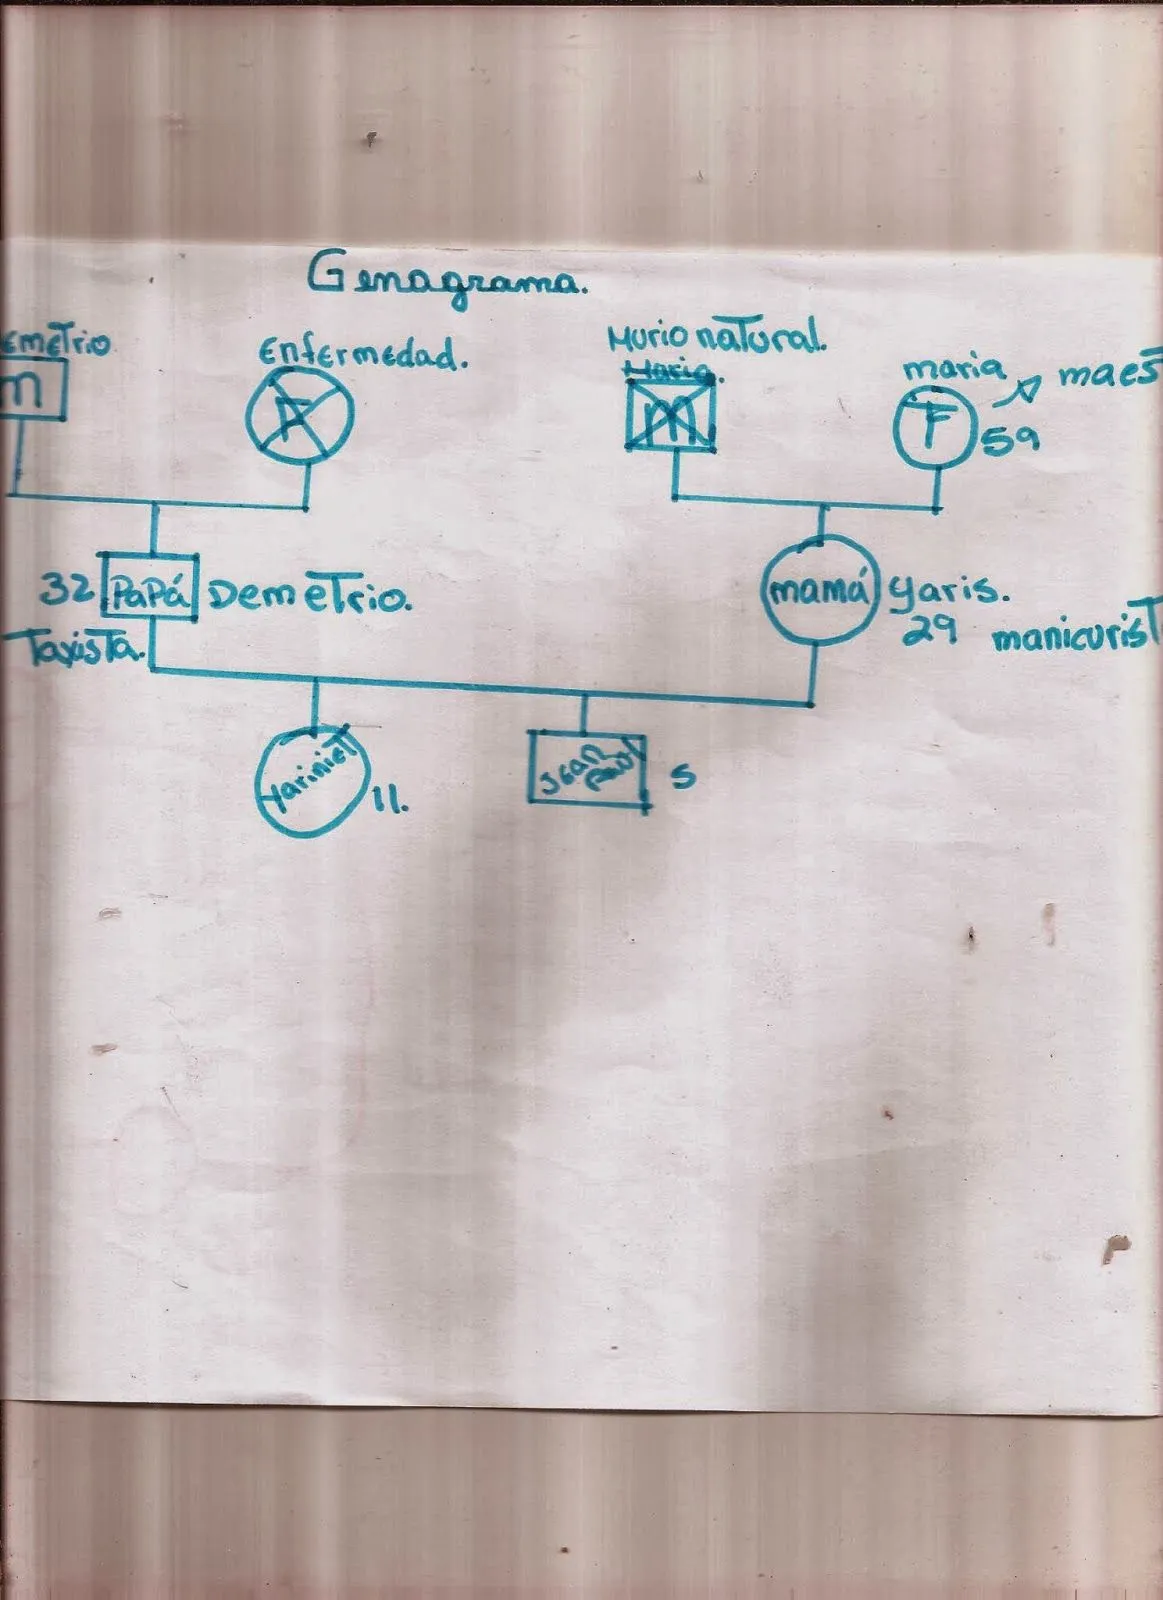 Genagrama.
emetrio
Enfermedad.
Murio natural.
Maria.
maria
maes
m
F
m
F
59
32 PaPá Demetrio.
mamá yaris.
29
Taxista.
manicurist
Yariniet
11.
Jean
Paul
5